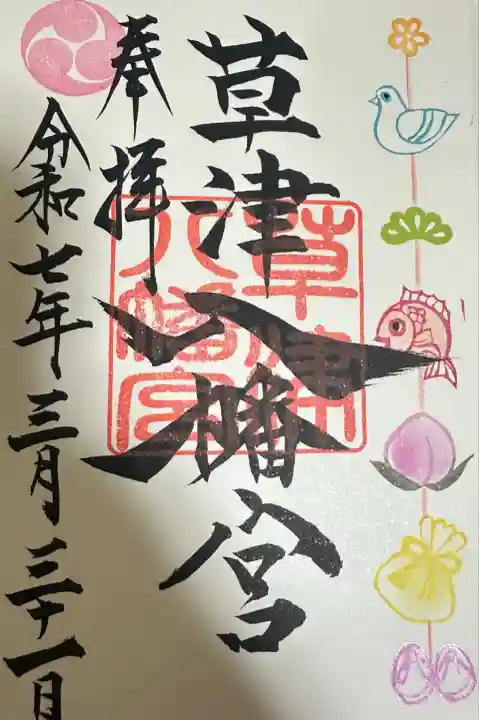 奉拝
草津八幡宮
草津八幡宮
令和七年三月三十一日